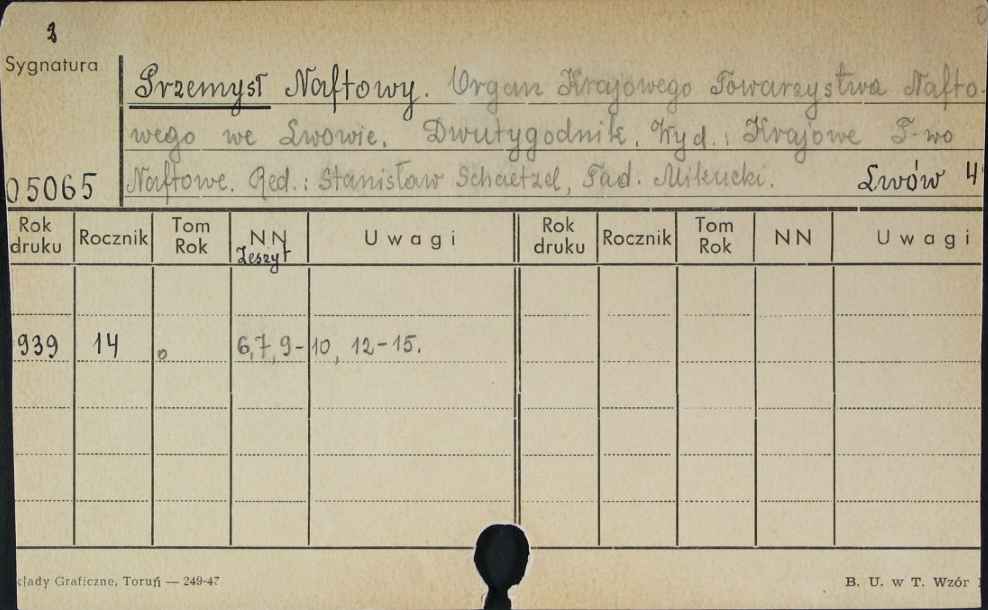 Sygnatura
Przemysł Naftowy. Organ Krajowego Towarzystwa Nafto-
wego we Lwowie. Dwutygodnik. Wyd.: Krajowe T-wo
Naftowe. Red.: Stanisław Schaetzel, Tad. Mikucki. Lwów 4°
05065
Rok druku Rocznik Tom Rok NN Zeszyt Uwagi Rok druku Rocznik Tom Rok NN Uwagi
939 14 6,7,9-10, 12-15.
kłady Graficzne, Toruń — 249-47 B. U. w T. Wzór